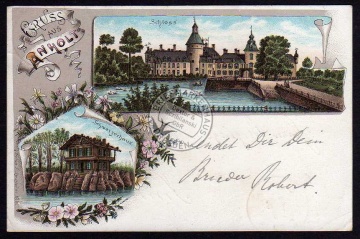 GRUSS
AUS
ANHOLT
Schloss
Schweizerhaus
sendet Dir Dein
Bruder Robert.